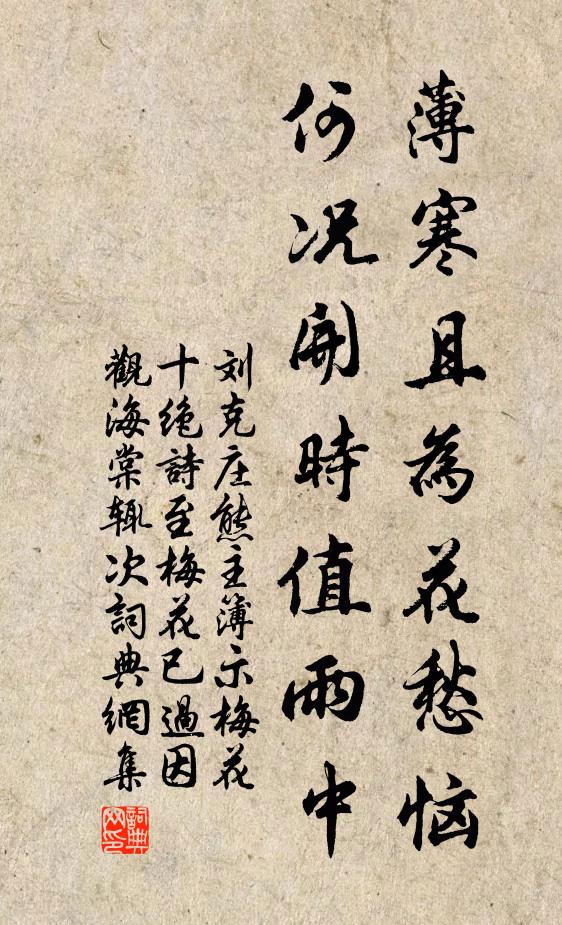 薄寒且為花愁恼
何况開時值雨中
刘克庄熊主簿示梅花
十绝詩至梅花已過因
觀海棠辄次詞典網集
詞典网印